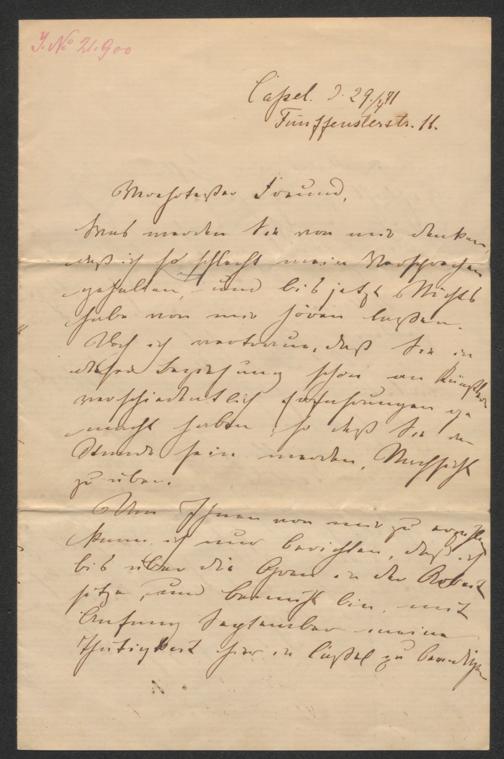 J. No 21.900
Cassel. d. 29./ 71
Fünffensterstr. 11.
Verehrtester Freund,
Was werden Sie von mir denken
daß ich so schlecht mein Versprechen
gehalten, und bis jetzt Nichts
habe von mir hören laßen.
Doch ich vertraue, daß Sie in
dieser Beziehung schon an Künstlern
verschiedentlich Erfahrungen ge
macht haben, so daß Sie im
Stande sein werden, Nachsicht
zu üben.
Um Ihnen von mir zu erzählen
kann ich nur berichten, daß ich
bis über die Ohren in der Arbeit
sitze, und bemüht bin, mit
Anfang September meine
Thätigkeit hier in Caßel zu beendigen